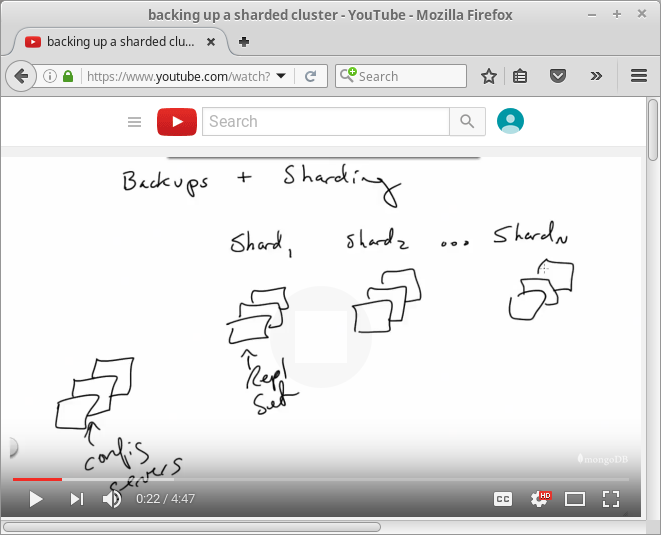 backing up a sharded cluster - YouTube - Mozilla Firefox
backing up a sharded clu...
https://www.youtube.com/watch?
Search
Search
Backups + Sharding
Shard1 Shard2 ... ShardN
Repl
Set
config
servers
mongoDB
0:22 / 4:47
CC
HD